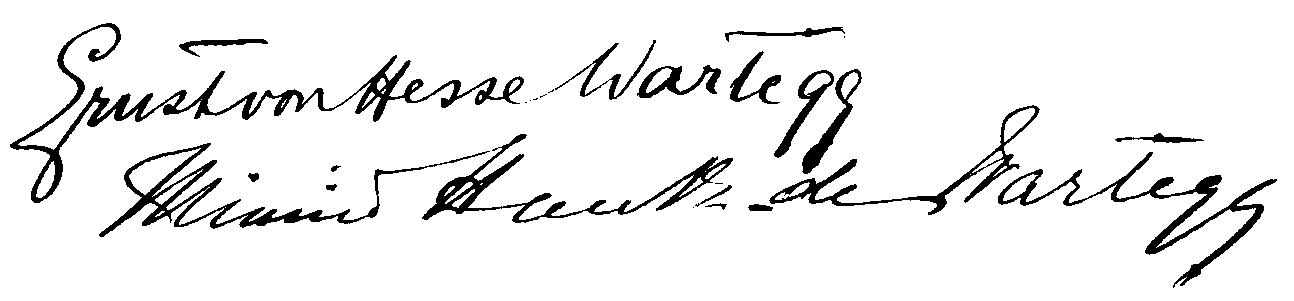 Ernst von Hesse Wartegg
Minnie Hauk-de Wartegg